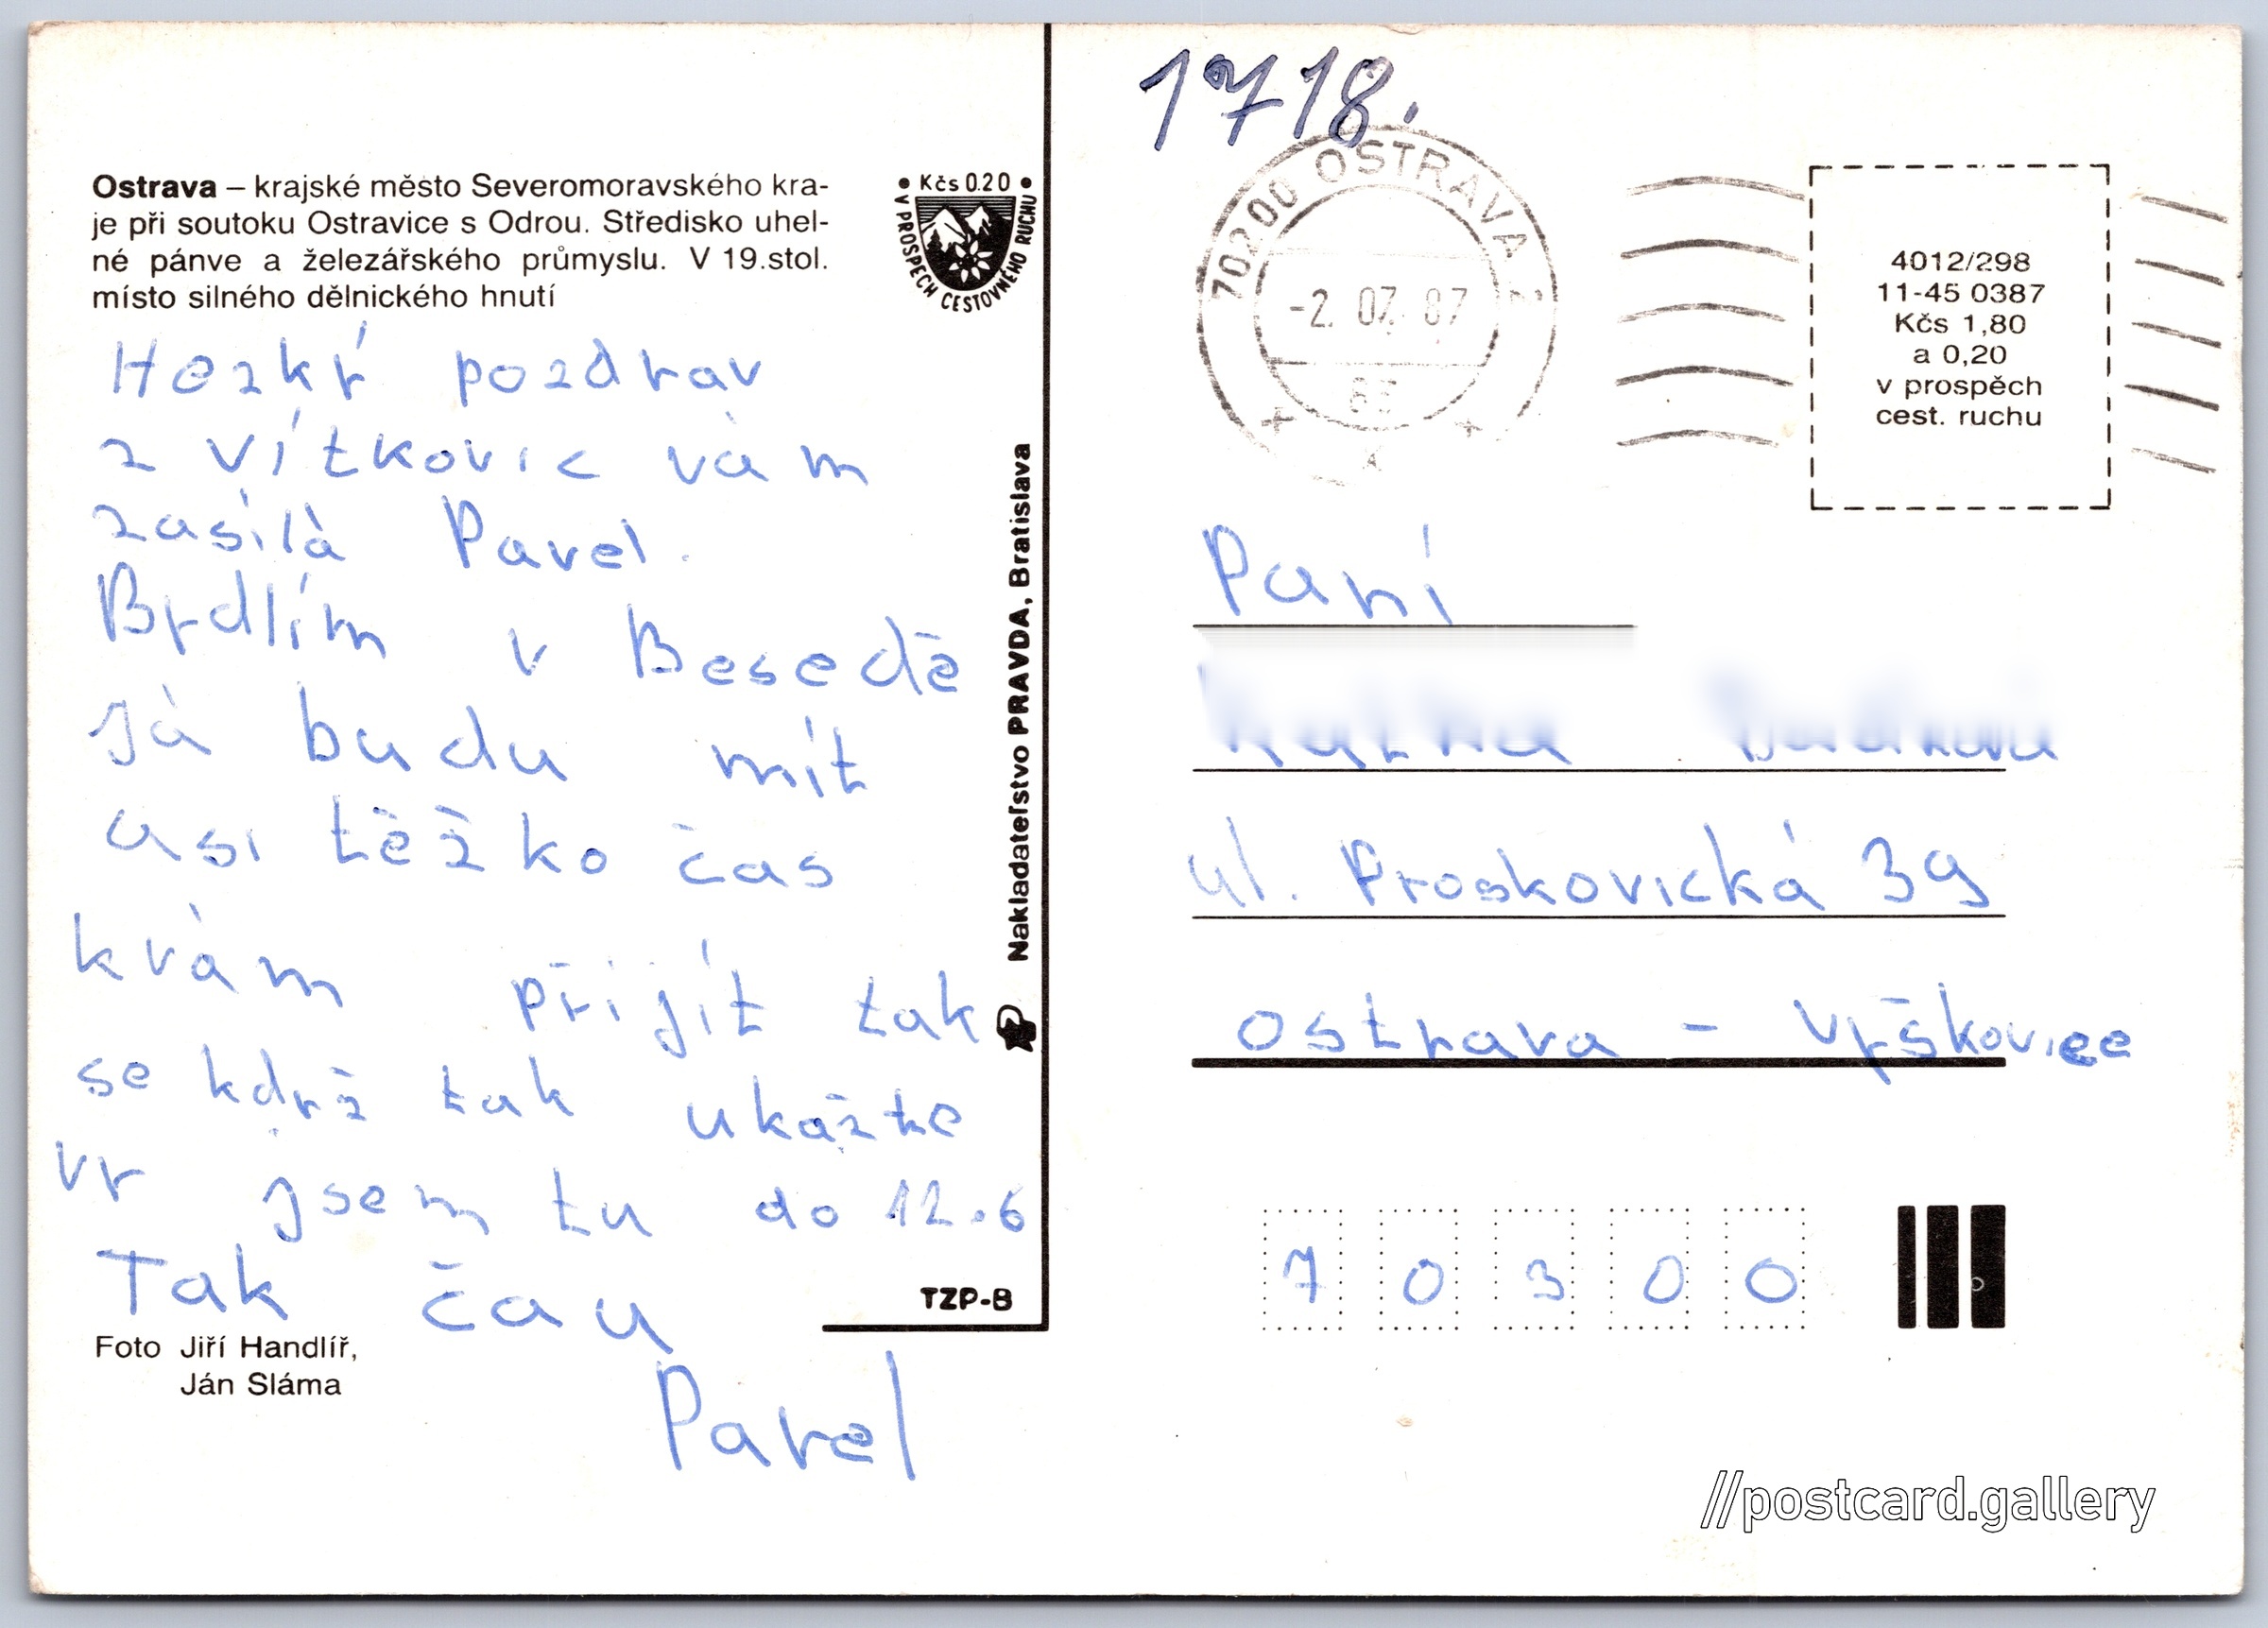 1718.
Ostrava – krajské město Severomoravského kra-
je při soutoku Ostravice s Odrou. Středisko uhel-
né pánve a železářského průmyslu. V 19.stol.
místo silného dělnického hnutí
• Kčs 0.20 •
V PROSPECH CESTOVNÉHO RUCHU
Hezký pozdrav
z Vítkovic vám
zasílá Pavel.
Bydlím v Besedě
Já budu mít
asi těžko čas
kvám přijít tak
se když tak ukažte
vy jsem tu do 12.6
Tak čau
Pavel
Foto Jiří Handlíř,
Ján Sláma
TZP-8
Nakladateľstvo PRAVDA, Bratislava
70200 OSTRAVA 2
-2. 07. 87
4012/298
11-45 0387
Kčs 1,80
a 0,20
v prospěch
cest. ruchu
Paní
ul. Proskovická 39
Ostrava - Vyškovice
70300
//postcard.gallery